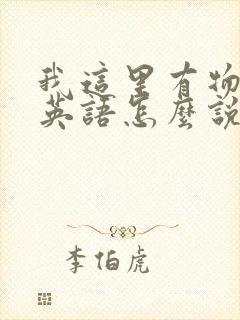 我這里有物
英語怎麼說
李伯虎